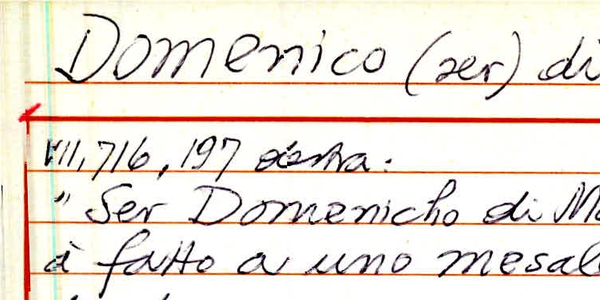 Domenico (ser) di
VII, 716, 197 destra:
" Ser Domenicho di Ma
à fatto a uno mesal